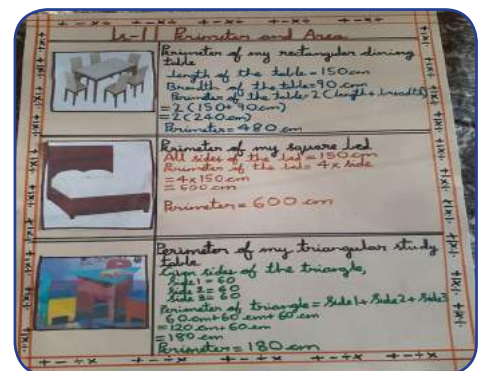 Ls-11 Perimeter and Area
Perimeter of my rectangular dining
table
Length of the table = 150cm
Breadth of the table = 90 cm
Perimeter of the table = 2 (length + breadth)
= 2 (150 + 90 cm)
= 2 (240 cm)
Perimeter = 480 cm
Perimeter of my square bed
All sides of the bed = 150 cm
Perimeter of the bed = 4 x side
= 4 x 150 cm
= 600 cm
Perimeter = 600 cm
Perimeter of my triangular study
table
Given sides of the triangle,
Side 1 = 60
Side 2 = 60
Side 3 = 60
Perimeter of triangle = Side 1 + Side 2 + Side 3
60 cm + 60 cm + 60 cm
= 120 cm + 60 cm
= 180 cm
Perimeter = 180 cm